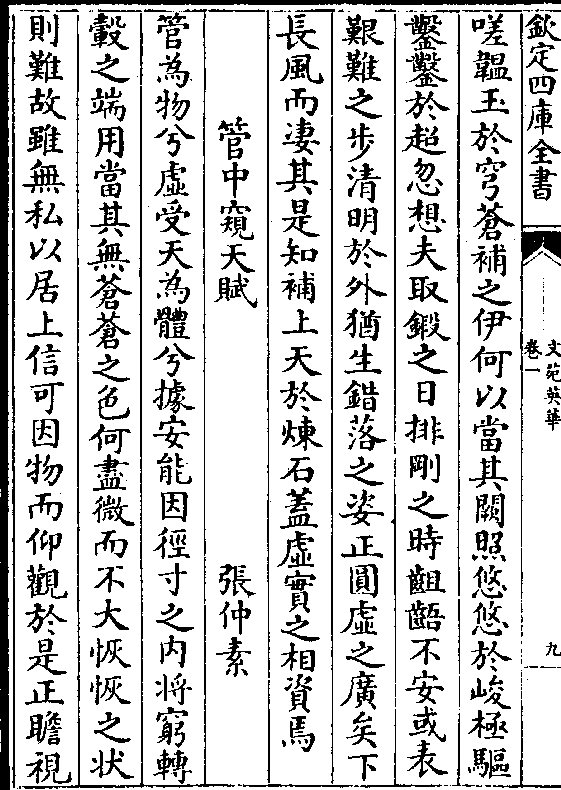 欽定四庫全書
文苑英華
卷一
九
嗟韞玉於穹蒼補之伊何以當其闕照悠悠於峻極驅
鑿鑿於超忽想夫取鍛之日排剛之時齟齬不安或表
艱難之步清明於外猶生錯落之姿正圓虛之廣矣下
長風而凄其是知補上天於煉石蓋虛實之相資焉
管中窺天賦　張仲素
管為物兮虛受天為體兮據安能因徑寸之内將窮轉
轂之端用當其無蒼蒼之色何盡微而不大恢恢之状
則難故雖無私以居上信可因物而仰觀於是正瞻視